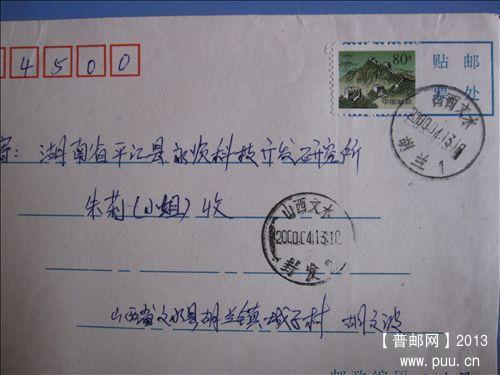 4500
80分
中国邮政
贴 邮
处
山西文水
2000.04.13.18
寄：湖南省平江县永顺科技开发研究所
朱莉（小姐）收
山西文水
2000.04.13.18
山西省文水县胡兰镇城子村 胡文波
【普邮网】2013
www.puu.cn